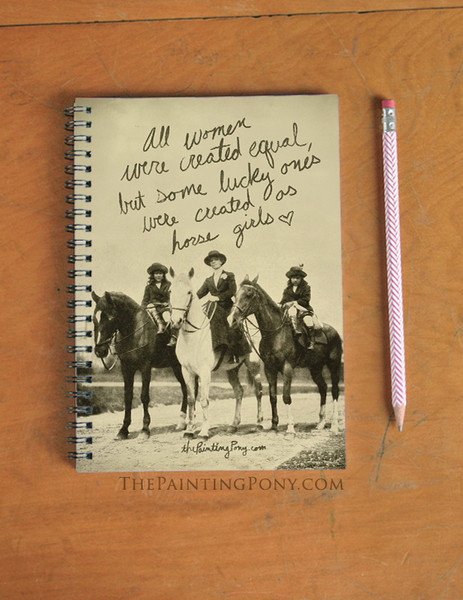 All women
were created equal,
but some lucky ones
were created as
horse girls ♡
thePaintingPony.com
THEPAINTINGPONY.COM